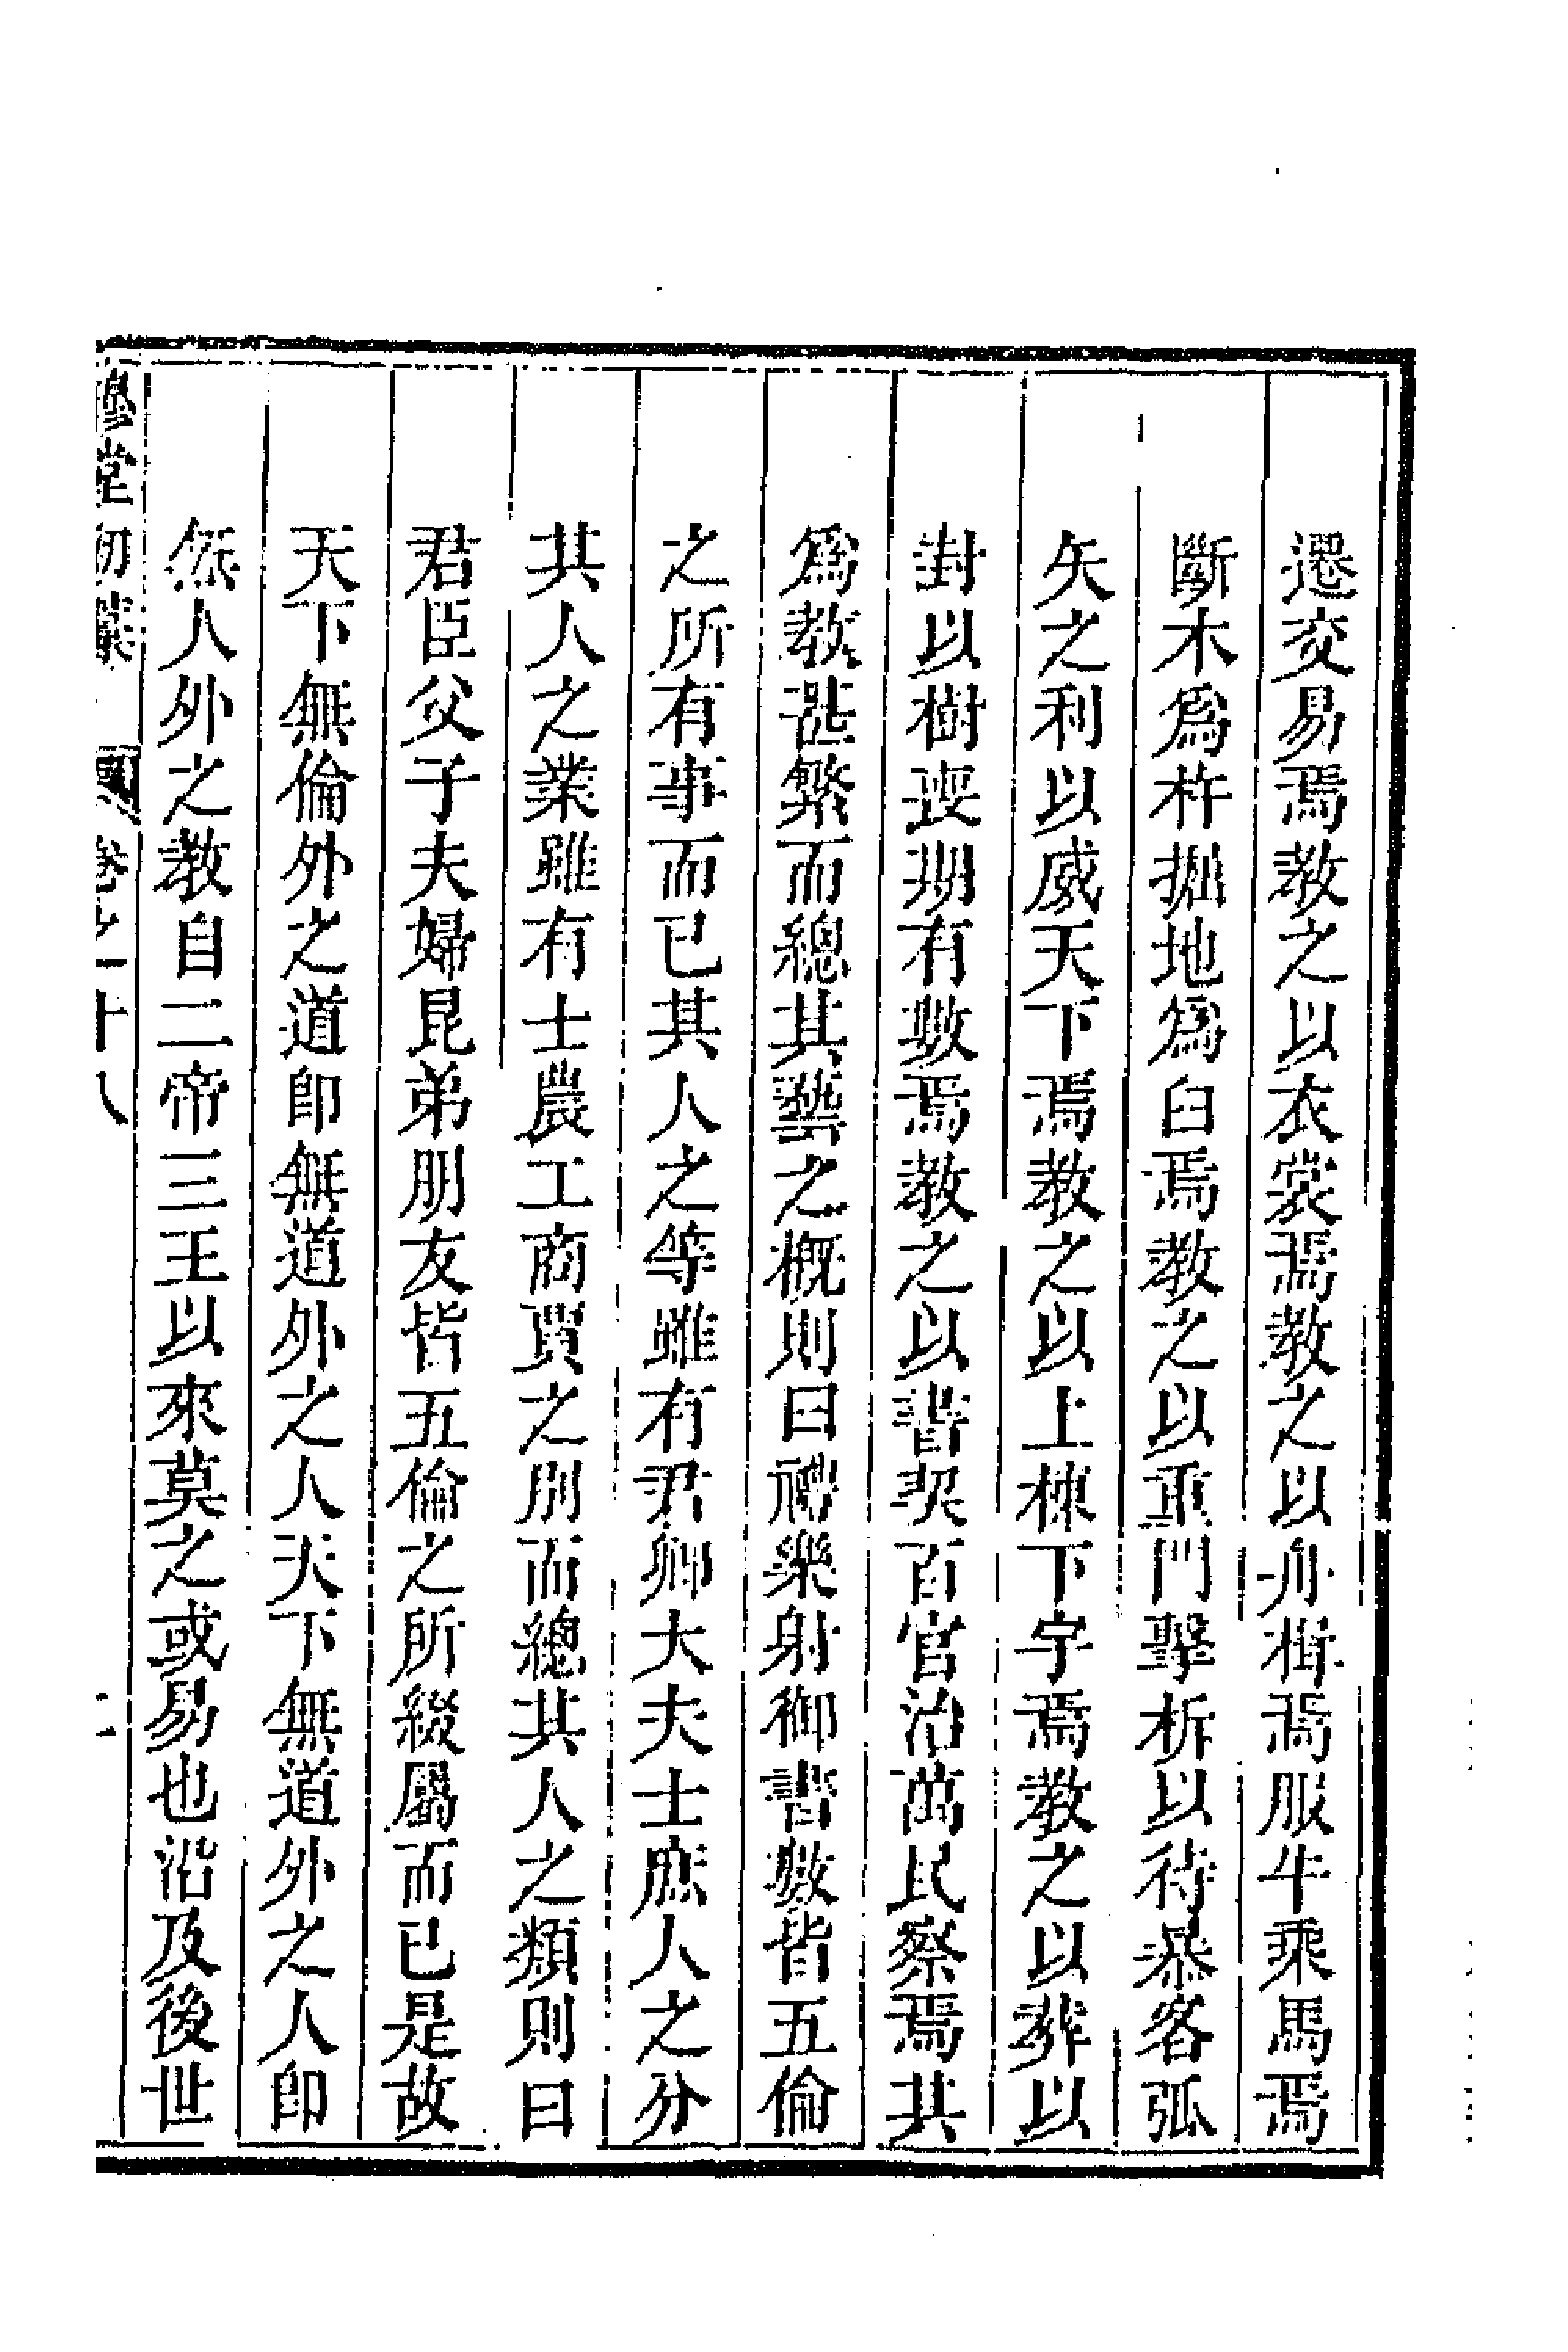 遷交易焉教之以衣裳焉教之以舟楫焉服牛乘馬焉
斷木爲杵掘地爲臼焉教之以重門擊柝以待暴客弧
矢之利以威天下焉教之以上棟下宇焉教之以葬以
封以樹喪期有數焉教之以書契百官治萬民察焉其
爲教甚繁而總其藝之概則曰禮樂射御書數皆五倫
之所有事而已其人之等雖有君卿大夫士庶人之分
其人之業雖有士農工商賈之別而總其人之類則曰
君臣父子夫婦昆弟朋友皆五倫之所綴屬而已是故
天下無倫外之道卽無道外之人天下無道外之人卽
無人外之教自二帝三王以來莫之或易也沿及後世
穆堂初藁 卷之十八